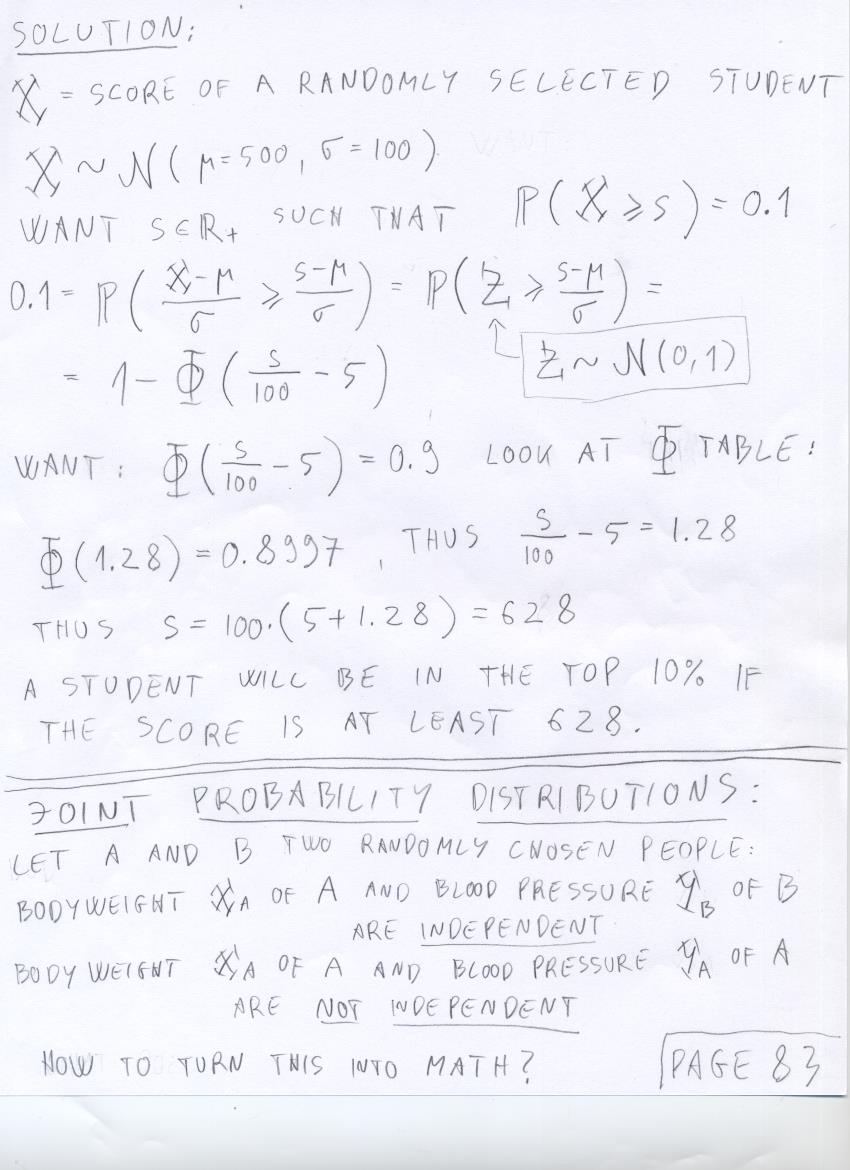 SOLUTION:
X = SCORE OF A RANDOMLY SELECTED STUDENT
X ~ N( μ=500, σ=100)
WANT S∈R₊ SUCH THAT P(X ⩾ s) = 0.1
0.1 = P( (X-μ)/σ ⩾ (s-μ)/σ ) = P( Z ⩾ (s-μ)/σ ) =
= 1 - Φ( s/100 - 5) ↑ Z ~ N(0,1)
WANT: Φ( s/100 - 5) = 0.9 LOOK AT Φ TABLE:
Φ(1.28) = 0.8997, THUS s/100 - 5 = 1.28
THUS S = 100·(5+1.28) = 628
A STUDENT WILL BE IN THE TOP 10% IF
THE SCORE IS AT LEAST 628.
JOINT PROBABILITY DISTRIBUTIONS:
LET A AND B TWO RANDOMLY CHOSEN PEOPLE:
BODYWEIGHT X_A OF A AND BLOOD PRESSURE Y_B OF B
ARE INDEPENDENT
BODYWEIGHT X_A OF A AND BLOOD PRESSURE Y_A OF A
ARE NOT INDEPENDENT
HOW TO TURN THIS INTO MATH?
PAGE 83